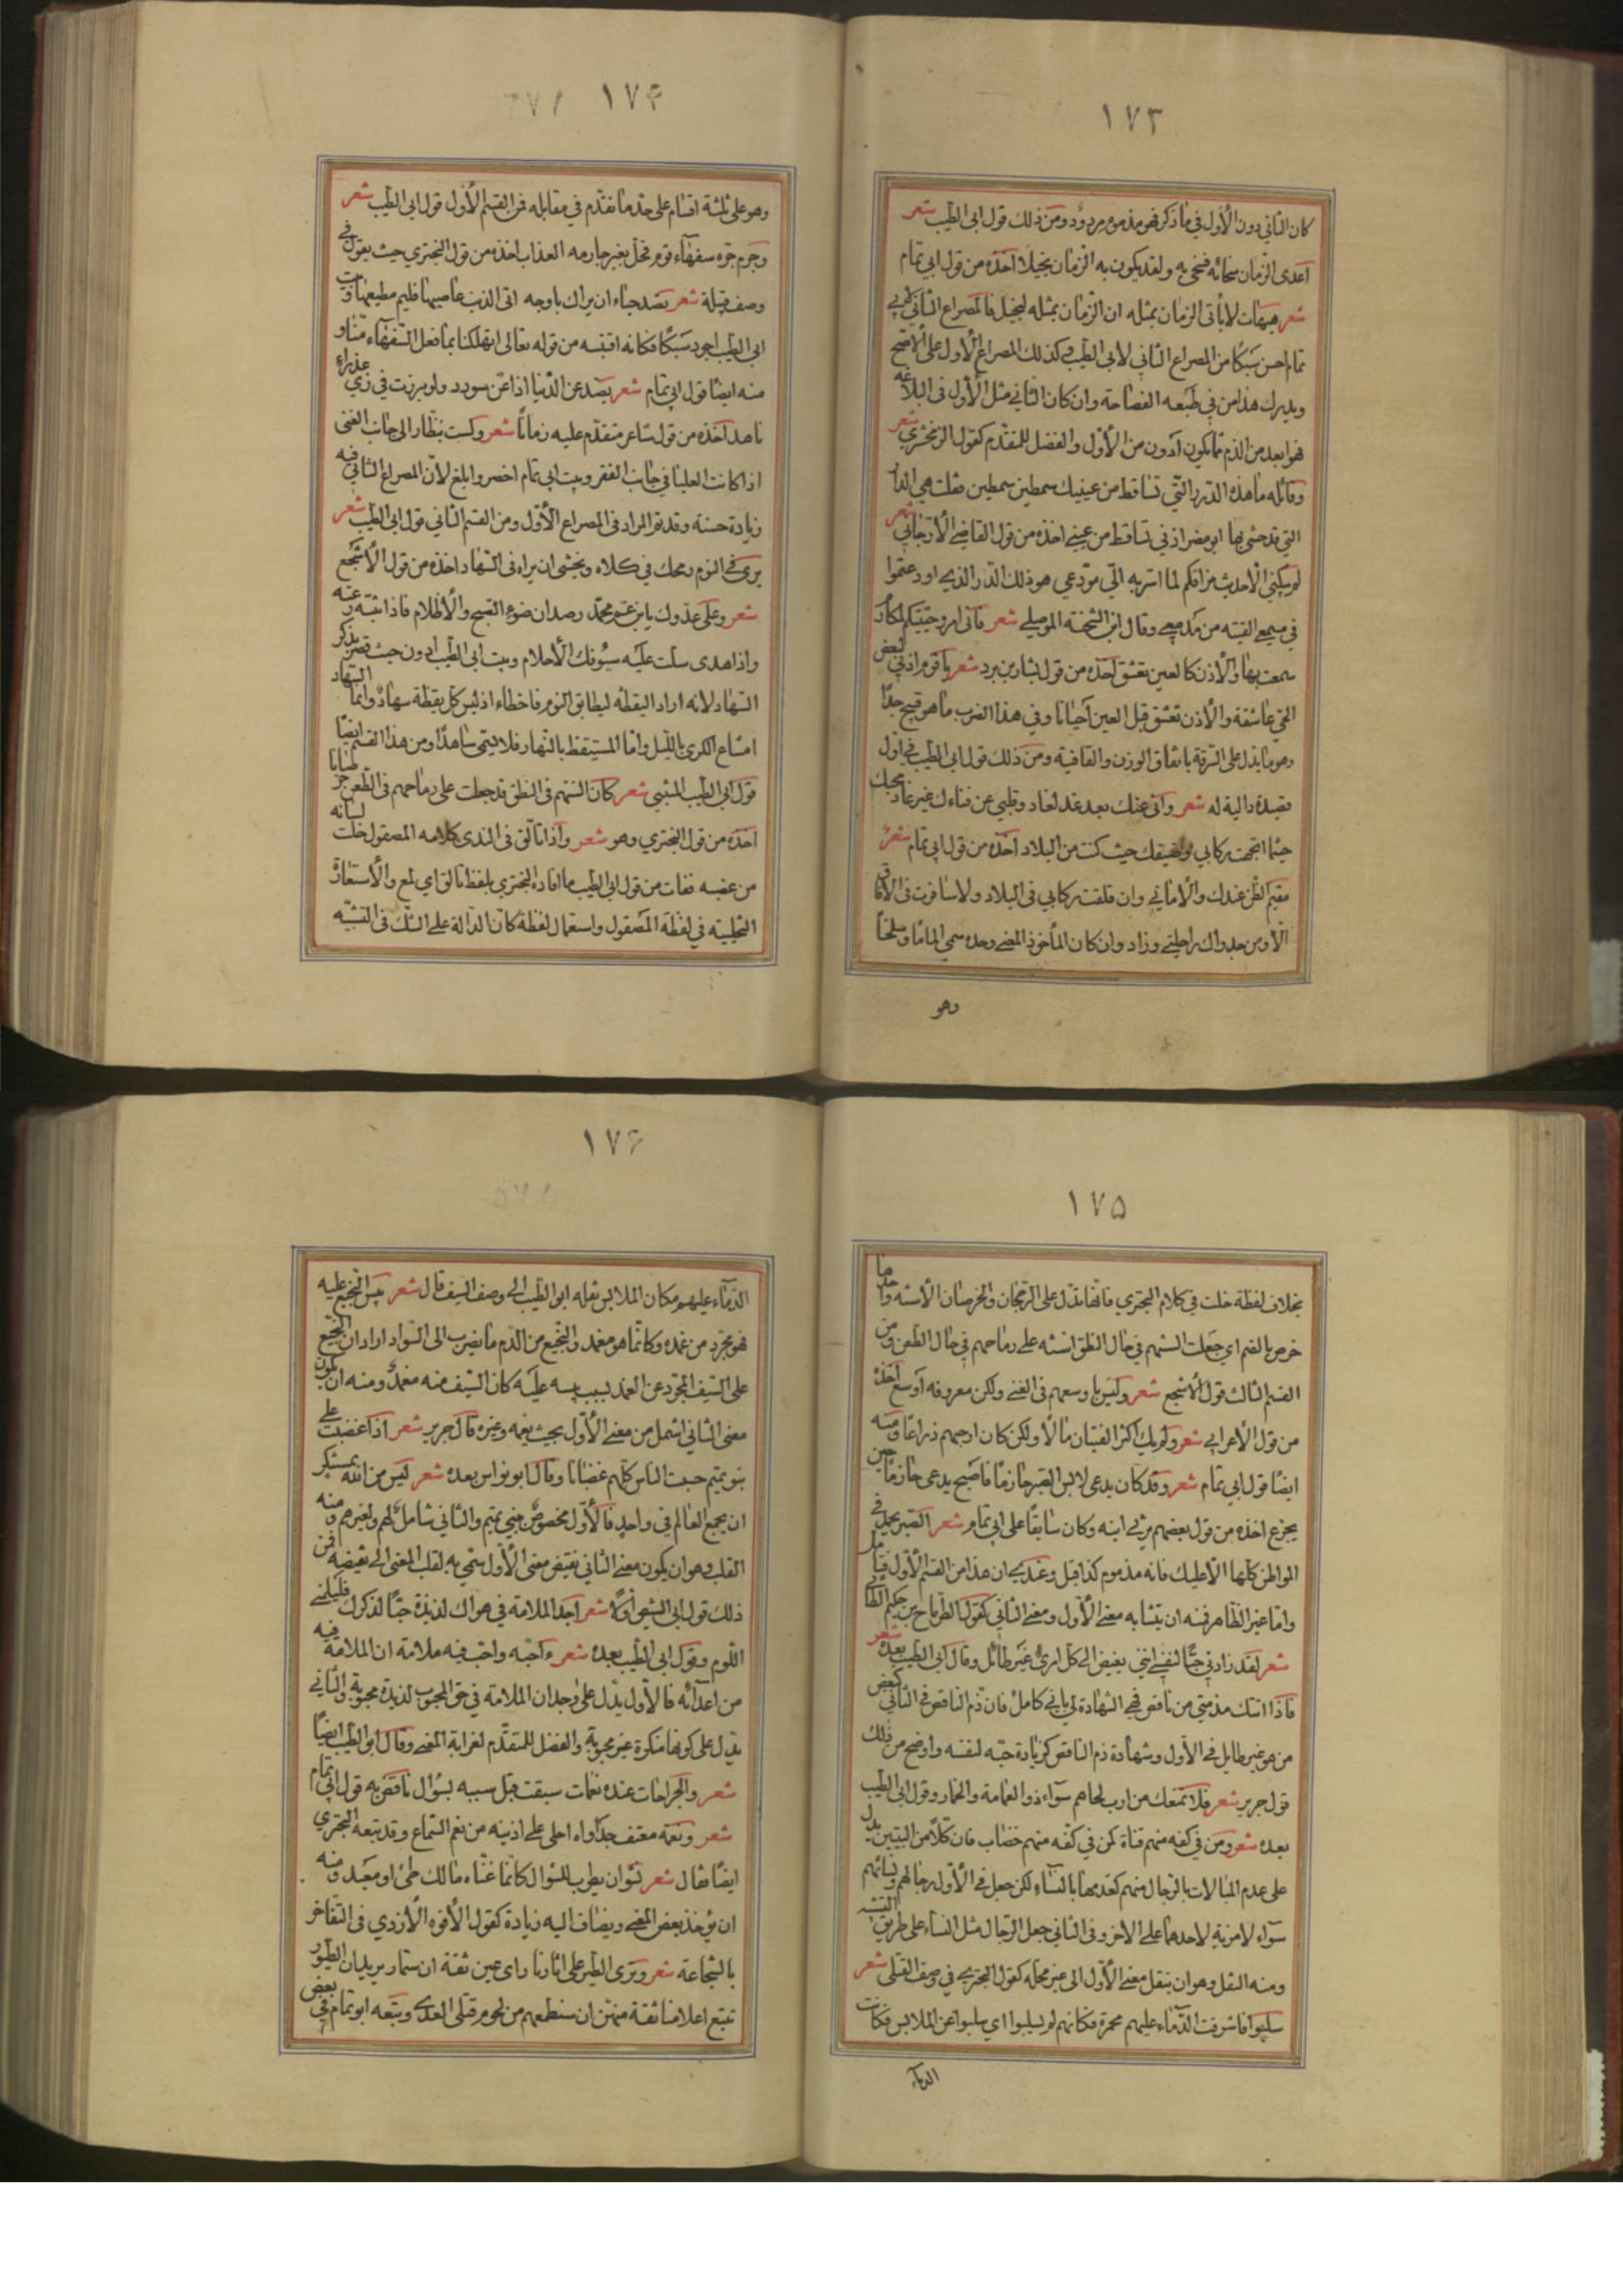 ١٧٣
كان الثاني دون الأول في ما ذكر فهو مذموم مردود ومن ذلك قول ابي الطيب شعر
اعدى الزمان سخائه فسخى به ولقد يكون به الزمان بخيلا اخذه من قول ابي تمام
شعر هيهات لا يأتي الزمان بمثله ان الزمان بمثله لبخيل فالمصراع الثاني لابي
تمام احسن سبكا من المصراع الثاني لابي الطيب وكذلك المصراع الأول على الاصح
ويدرك هذا من في طبعه الفصاحة وان كان الثاني مثل الأول في البلاغة
فهو ابعد من الذم مما يكون ادون من الأول والفضل للمتقدم كقول الزمخشري شعر
وقائلة ما هذه الدرر التي تساقط من عينيك سمطين سمطين فقلت هي الدر
التي قد حشى بها ابو مضر اذني تساقط من عيني اخذه من قول القاضي الارجاني شعر
لم يبكني الا حديث فراقكم لما اسر به الي مودعي هو ذلك الدر الذي اودعتموا
في مسمعي القيته من مدمعي وقال ابن الشحنة الموصلي شعر فاني امرؤ حببتكم لمكارم
سمعت بها والأذن كالعين تعشق اخذه من قول بشار بن برد شعر يا قوم اذني لبعض
الحي عاشقة والأذن تعشق قبل العين احيانا وفي هذا الضرب ما هو قبيح جدا
وهو ما يدل على السرقة باتفاق الوزن والقافية ومن ذلك قول ابي الطيب في اول
قصيدة دالية له شعر واني عنك بعد غد لغاد وقلبي عن فناءك غير غاد محبك
حيثما اتجهت ركابي وضيفك حيث كنت من البلاد اخذه من قول ابي تمام شعر
مقيم الظن عندك والأماني وان قلقت ركابي في البلاد ولا سافرت في الافاق
الا ومن جدواك راحلتي وزاد وان كان المأخوذ المعنى وحده سمي الماما وسلخا
وهو
١٧۴
وهو على ثلثة اقسام على حذو ما تقدم في مقابله فمن القسم الأول قول ابي الطيب شعر
وجرم جره سفهاء قوم فحل بغير جارمه العذاب اخذه من قول البحتري حيث يقول في
وصف قبيلة شعر تصد حياء ان يراك باوجه اتى الذنب عاصيها فليم مطيعها وبيت
ابي الطيب اجود سبكا فكانه اقتبسه من قوله تعالى اتهلكنا بما فعل السفهاء منا و
منه ايضا قول ابي تمام شعر يصد عن الدنيا اذا عن سودد ولو برزت في زي عذراء
ناهد اخذه من قول شاعر متقدم عليه زمانا شعر ولست بنظار الى جانب الغنى
اذا كانت العليا في جانب الفقر وبيت ابي تمام اخصر وابلغ لأن المصراع الثاني فيه
زيادة حسنة وقد تم المراد في المصراع الأول ومن القسم الثاني قول ابي الطيب شعر
يرى في النوم رمحك في كلاه ويخشى ان يراه في السهاد اخذه من قول الأشجع
شعر وعلى عدوك يا بن عم محمد رصدان ضوء الصبح والأظلام فاذا تنبه رعته
واذا هدى سلت عليه سيوفك الأحلام وبيت ابي الطيب ادون حيث قصر بذكر
السهاد لانه اراد اليقظة ليطابق النوم فاخطاء اذ ليس كل يقظة سهاد وانما السهاد
امتناع الكرى بالليل واما المستيقظ بالنهار فلا يسمى ساهدا ومن هذا القسم ايضا
قول ابي الطيب المتنبي شعر كان السنهم في النطق قد جعلت على رماحهم في الطعن خرصانا
اخذه من قول البحتري وهو شعر واذا تألق في الندى كلامه المصقول خلت لسانه
من عضبه ففات من قول ابي الطيب ما افاده البحتري بلفظ تألق اي لمع والأستعارة
التخييلية في لفظة المصقول واستعمال لفظة كان الدالة على الشك في التشبيه
١٧۵
بخلاف لفظة خلت في كلام البحتري فانها تدل على الرجحان والخرصان الأسنة واحدها
خرص بالضم اي جعلت السنهم في حال النطق اسنة على رماحهم في حال الطعن ومن
القسم الثالث قول الأشجع شعر وليس باوسعهم في الغنى ولكن معروفه اوسع اخذه
من قول الأعرابي شعر ولم يك اكثر الفتيان مالا ولكن كان ارحبهم ذراعا ومنه
ايضا قول ابي تمام شعر وقد كان يدعى لابس الصبر حازما فاصبح يدعى حازما حين
يجزع اخذه من قول بعضهم يرثي ابنه وكان سابقا على ابي تمام شعر الصبر يحمد في
المواطن كلها الا عليك فانه مذموم كذا قيل وعندي ان هذا من القسم الأول فتأمل
واما غير الظاهر فمنه ان يتشابه معنى الأول ومعنى الثاني كقول الطرماح بن حكيم الطائي
شعر لقد زادني حبا لنفسي انني بغيض الى كل امرئ غير طائل وقال ابي الطيب بعده شعر
فاذا اتتك مذمتي من ناقص فهي الشهادة لي باني كامل فان ذم الناقص في الثاني كبغض
من هو غير طايل في الأول وشهادة ذم الناقص كزيادة حبه لنفسه واوضح من ذلك
قول جرير شعر فلا تمنعك من ارب لحاهم سواء ذو العمامة والخمار وقول ابي الطيب
بعده شعر ومن في كفه منهم قناة كمن في كفه منهم خضاب فان كلا من البيتين يدل
على عدم المبالات بالرجال منهم كعدمها بالنساء لكن جعل في الأول رجالهم ونسائهم
سواء لا مزية لاحدهما على الاخر وفي الثاني جعل الرجال مثل النساء على طريق التشبيه
ومنه النقل وهو ان ينقل معنى الأول الى غير محله كقول البحتري في وصف القتلى شعر
سلبوا فاشرقت الدماء عليهم محمرة فكانهم لم يسلبوا اي سلبوا عن الملابس فكانت
الدماء
١٧۶
الدماء عليهم مكان الملابس نقله ابو الطيب الى وصف السيف قال شعر يبس النجيع عليه
فهو مجرد من غمده وكانما هو مغمد والنجيع من الدم ما يضرب الى السواد اراد ان النجيع
على السيف المجرد عن الغمد بسبب يبسه عليه كان السيف منه مغمد ومنه ان يكون
معنى الثاني اشمل من معنى الأول بحيث يعمه وغيره قال جرير شعر اذا غضبت على
بنو تميم حسبت الناس كلهم غضابا وقال ابو نواس بعده شعر ليس من الله بمستنكر
ان يجمع العالم في واحد فالأول مخصوص ببني تميم والثاني شامل لهم ولغيرهم ومنه
القلب وهو ان يكون معنى الثاني نقيض معنى الأول سمي به لقلب المعنى الى نقيضه فمن
ذلك قول ابي الشيص اولا شعر اجد الملامة في هواك لذيذة حبا لذكرك فليلمني
اللوم وقول ابي الطيب بعده شعر ءاحبه واحب فيه ملامة ان الملامة فيه
من اعدائه فالأول يدل على وجدان الملامة في حق المحبوب لذيذة محبوبة والثاني
يدل على كونها منكرة غير محبوبة والفضل للمتقدم لغرابة المعنى وقال ابو الطيب ايضا
شعر والجراحات عنده نغمات سبقت قبل سيبه بسؤال ناقض به قول ابي تمام
شعر ونغمة معتف جدواه احلى على اذنيه من نغم السماع وقد تبعه البحتري
ايضا فقال شعر نشوان يطرب للسؤال كانما غناه مالك طئ او معبد ومنه
ان يؤخذ بعض المعنى ويضاف اليه زيادة كقول الأفوه الأزدي في التفاخر
بالشجاعة شعر وترى الطير على اثارنا راى عين ثقة ان ستمار يريد ان الطيور
تتبع اعلامنا ثقة منهن ان سنطعمهم من لحوم قتلى العدى وتبعه ابو تمام في بعض